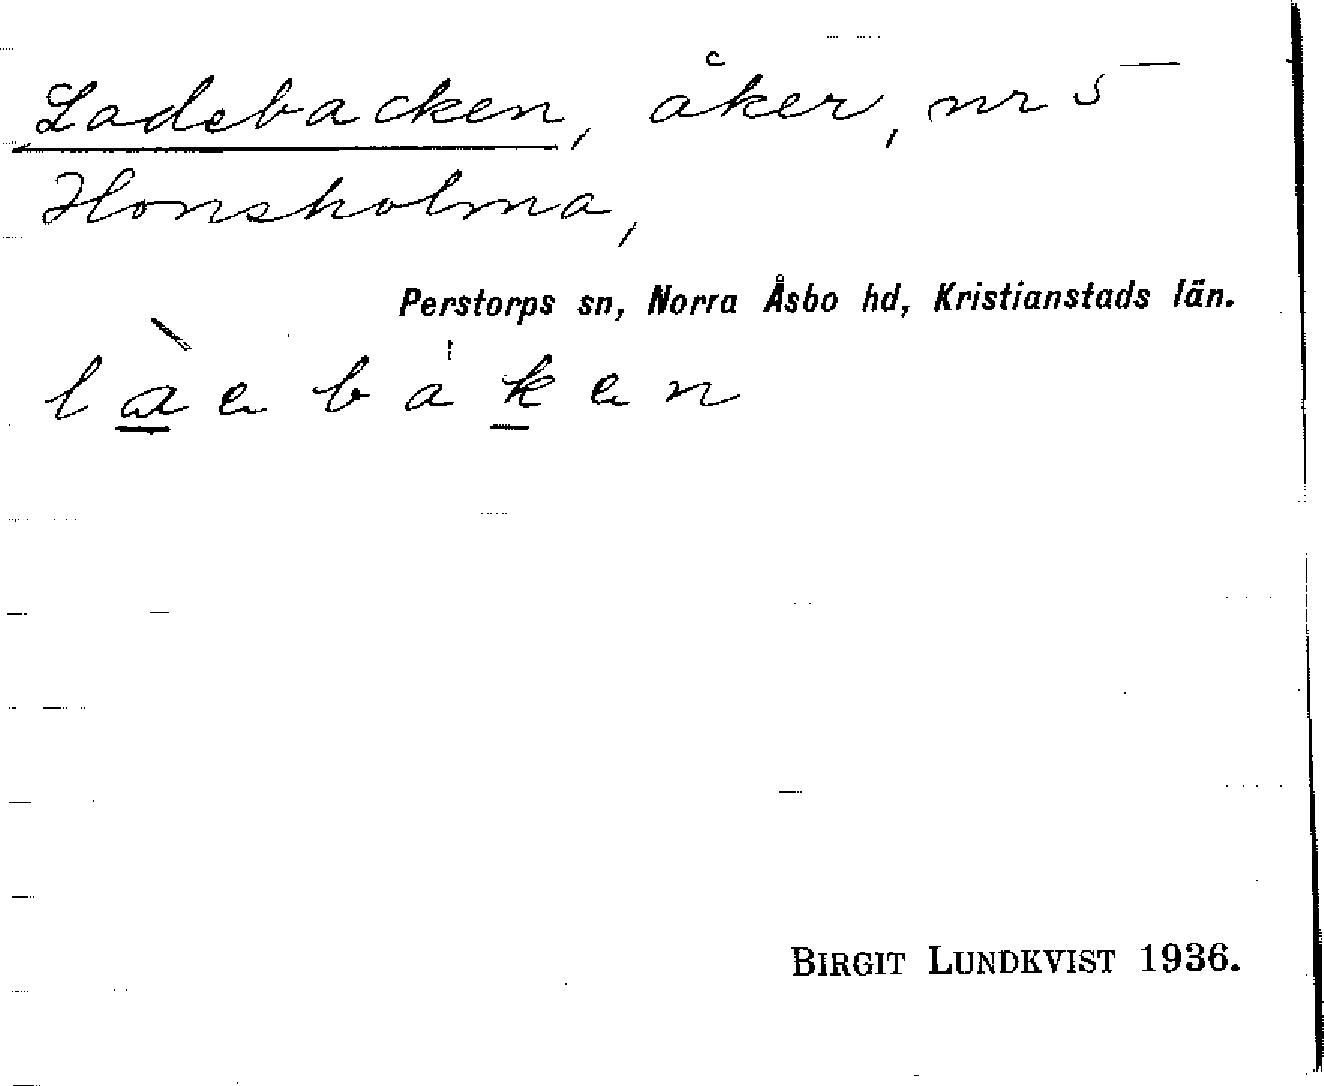 Ladebacken, åker, nr 5
Honsholma,
Perstorps sn, Norra Åsbo hd, Kristianstads län.
làebak̲en
BIRGIT LUNDKVIST 1936.